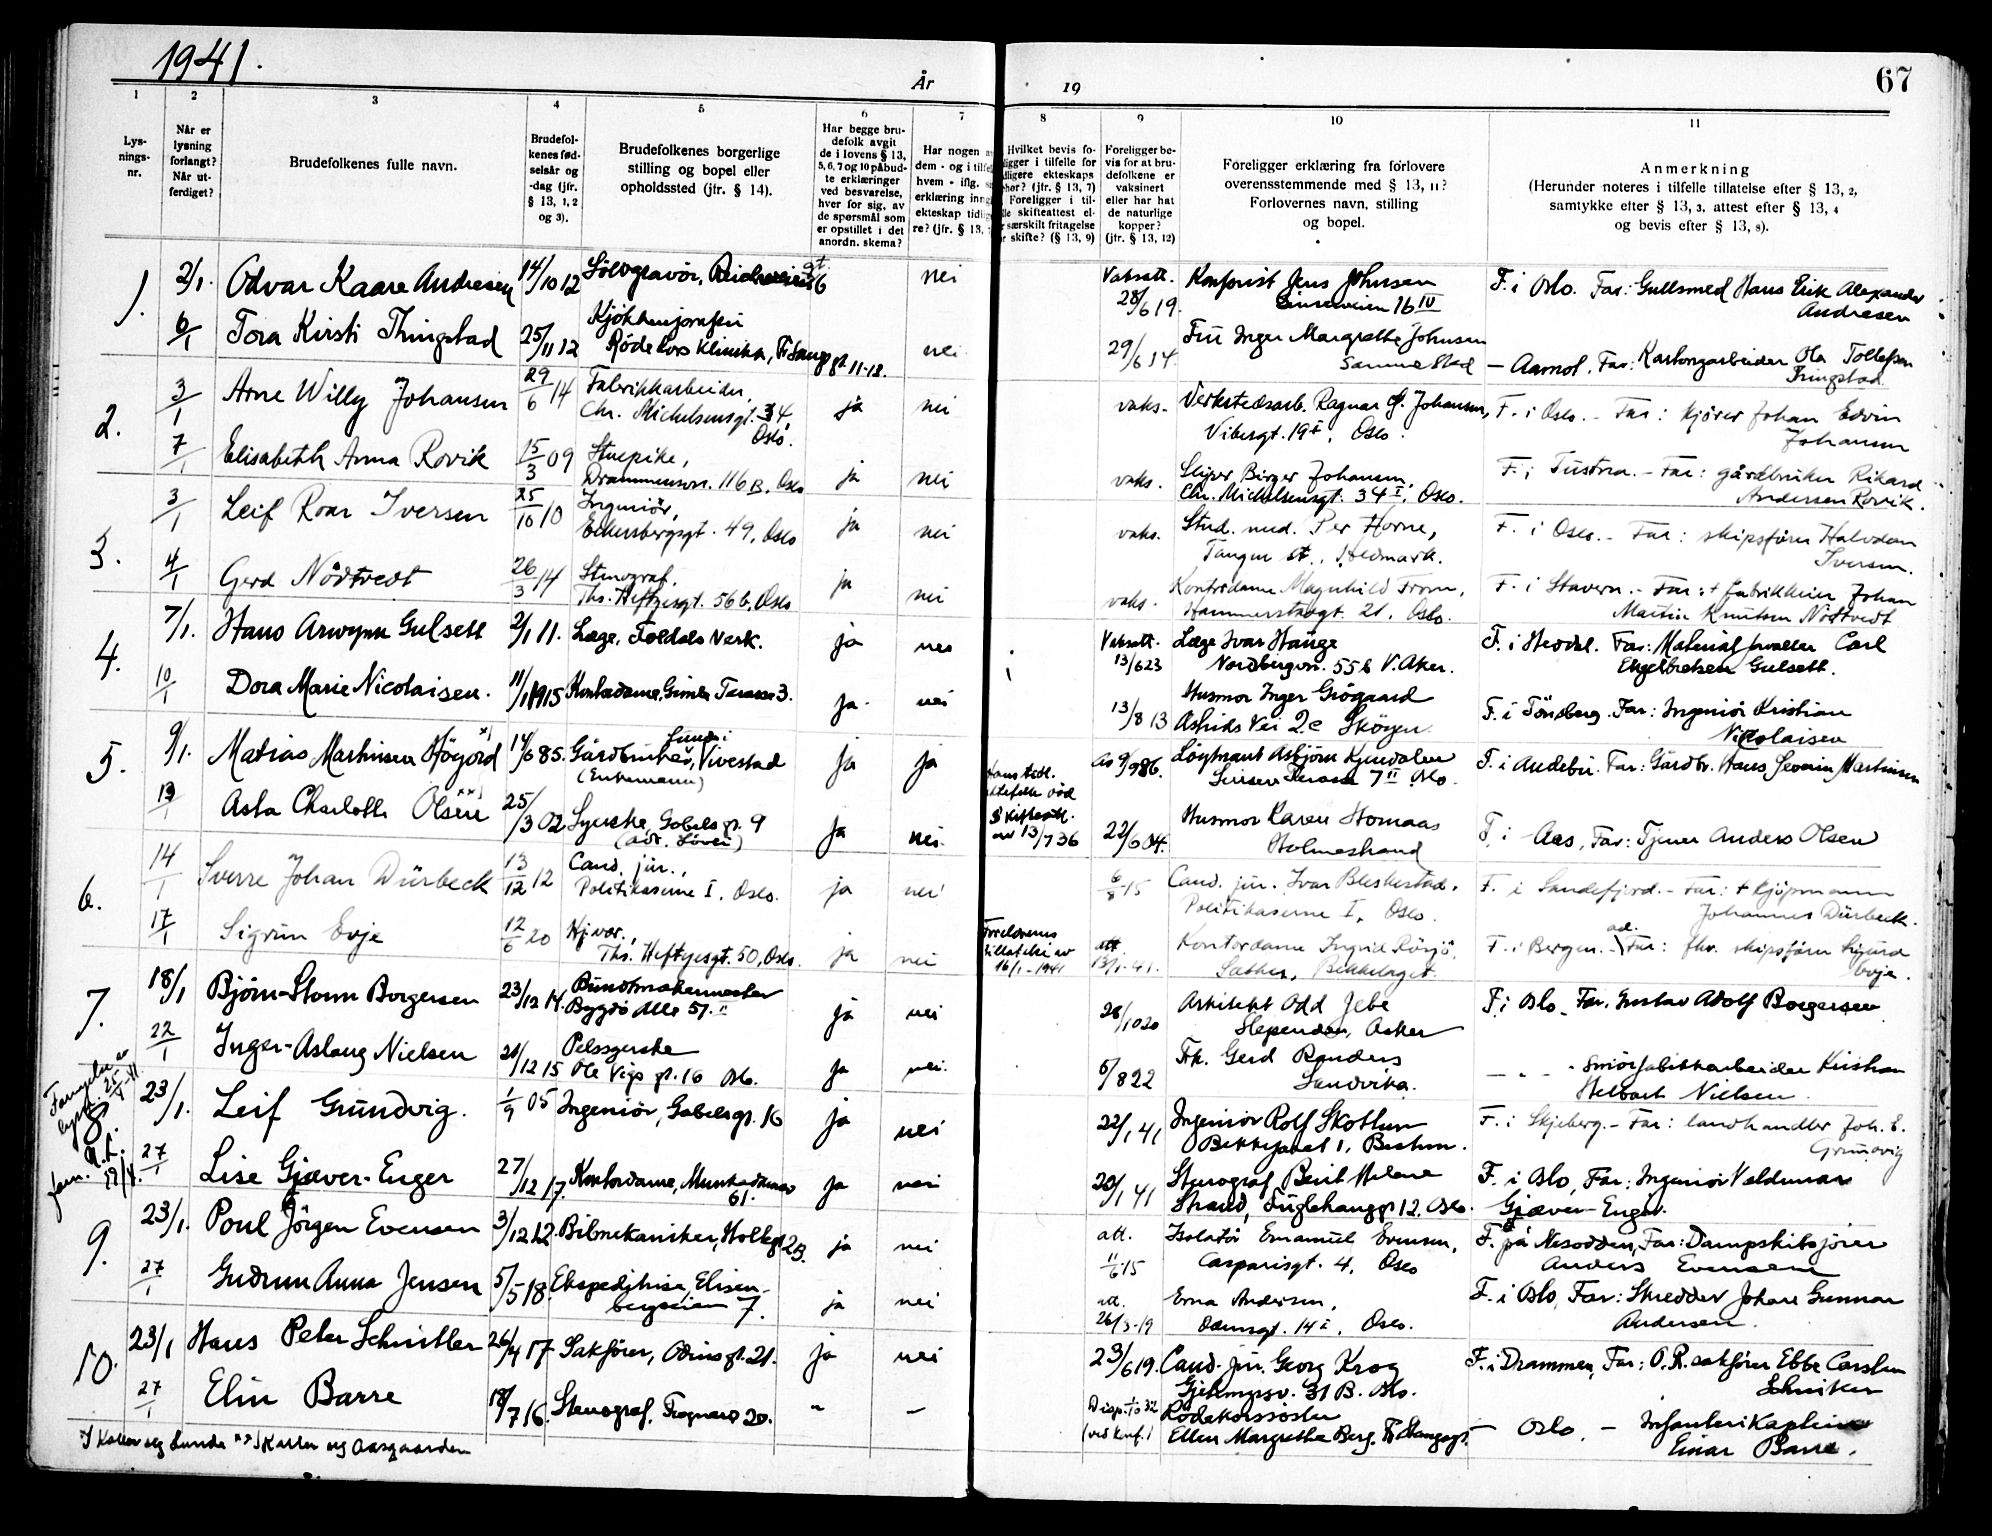 1941.
År
19
67
1
2
3
4
5
6
7
8
9
10
11
Lys-
nings-
nr.
Når er
lysning
forlangt?
Når ut-
ferdiget?
Brudefolkenes fulle navn.
Brudefol-
kenes fød-
selsår og
-dag (jfr.
§ 13, 1, 2
og 3).
Brudefolkenes borgerlige
stilling og bopel eller
opholdssted (jfr. § 14).
Har begge bru-
defolk avgit
de i lovens § 13,
5, 6, 7 og 10 påbud-
te erklæringer
ved besvarelse,
hver for sig, av
de spørsmål som
er opstillet i det
anordn. skema?
Har nogen a
dem - og i tilfe
hvem - iflg.
erklæring inng
ekteskap tidlig
re? (jfr. § 13,
Hvilket bevis fo-
ligger i tilfelle for
dligere ekteskaps
phør? (jfr. § 13, 7)
Foreligger i til-
lle skifteattest el-
særskilt fritagelse
r skifte? (§ 13, 9)
Foreligger be-
vis for at bru-
defolkene er
vaksinert
eller har hat
de naturlige
kopper?
(jfr. § 13, 12)
Foreligger erklæring fra forlovere
overensstemmende med § 13, 11?
Forlovernes navn, stilling
og bopel.
Anmerkning
(Herunder noteres i tilfelle tillatelse efter § 13, 2,
samtykke efter § 13, 3, attest efter § 13, 4
og bevis efter § 13, 8).
1.
2/1. Odvar Kaare Andresen 14/10 12 Sölvgravör, 6 nei Vaksatt. 28/6 19. Jens Johnsen 16 IV F. i Oslo. Far: Gullsmed Hans Erik Alexander
Andresen
6/1 Tora Kirsti Thingstad 25/11 12 Røde Kors Klinikk, gt 11-18. nei 29/6 14 Fru Inger Margrethe Johnsen
Samme sted — Aarnol. Far: Ole Tollefsen
Thingstad.
2.
3/1 Arne Willy Johansen 29/6 14 Fabrikkarbeider,
Chr. Michelsensgt. 34, Oslo. ja nei vaks. Verkstedsarb. Ragnar G. Johansen,
Vibesgt. 19 I, Oslo. F. i Oslo. - Far: kjører Johan Edvin
Johansen
7/1 Elisabeth Anna Rovik 15/3 09 Stuepike,
Drammensvn. 116 B, Oslo ja nei vaks. Birger Johansen,
Chr. Michelsensgt. 34 I, Oslo. F. i Tustna. - Far: gårdbruker Rikard
Andersen Rovik.
3.
3/1 Leif Roar Iversen 25/10 10 Ingeniør,
Eckersbergsgt. 49, Oslo ja nei vaks. Stud. med. Per Horne,
Tangen st., Hedmark. F. i Oslo. - Far: skipsfører Halvdan
Iversen.
4/1 Gerd Nödtvedt 26/3 14 Stenograf,
Ths. Heftyesgt. 56 b, Oslo ja nei vaks. Kontordame Magnhild From,
Hammerstadgt. 21, Oslo. F. i Stavern. - Far: + fabrikkeier Johan
Martin Knutsen Nödtvedt
4.
7/1. Hans Arwynn Gulsett 2/1 11. Læge, Foldals Verk. ja nei Vaksatt. 13/6 23 Læge Ivar Hauge
Nordbergvn. 55 b V. Aker. F. i Heddal. Far: Materialforvalter Carl
Engelbretsen Gulsett.
10/1 Dora Marie Nicolaisen. 11/1 1915 Kontordame, Gimle Terasse 3. ja. nei 13/8 13 Husmor Inger Grögaard
Astrids Vei 2c Sköyen. F. i Tönsberg. Far: Ingeniör Kristian
Nicolaisen
5.
9/1. Matias Martinsen Högjord x) 14/6 85. Gårdbruker, Vivestad
(Enkemann) ja ja 9/9 86. Löytnant Asbjörn Kjendalen
Sinsen Terasse 7 II Oslo. F. i Andebu. Far: Gårdbr. Hans Severin Martinsen
13/1 Asta Charlotte Olsen xx) 25/3 02 Syerske, Gabelsgt. 9 ja nei. 13/7 36 22/6 04. Husmor Karen Homaas
Holmestrand F. i Aas, Far: Tjener Anders Olsen
6.
14/1 Sverre Johan Dürbeck 13/12 12 Cand. jur.,
Politikaserne I, Oslo. ja nei 6/8 15 Cand. jur. Ivar Bleskestad,
Politikaserne I, Oslo. F. i Sandefjord. - Far: + kjøpmann
Johannes Dürbeck.
17/1 Sigrun Evje 12/6 20 Hj.vær.,
Ths. Heftyesgt. 50, Oslo. ja nei Foreldrenes
tillatelse av
16/1 - 1941 att. 13/1-41. Kontordame Ingrid
Sæther, Bekkelaget. F. i Bergen. - ad. Far: fhv. skipsfører Sigurd
Evje.
7.
18/1 Björn-Storm Borgersen 23/12 14. Buntmakermester
Bygdö Alle 57. II ja nei 28/10 20 Arkitekt Odd Jebe
Slependen, Asker F. i Oslo. Far. Gustav Adolf Borgersen
22/1 Inger-Aslaug Nielsen 21/12 15 Pelssyerske
Ole Vigs gt. 16 Oslo. ja nei. 5/8 22 Frk. Gerd Randers
Sandvika. — „ - Smörfabrikkarbeider Kristian
Helbart Nielsen.
23/1. Leif Grundvig. 1/9 05 Ingeniör, Gabelsgt. 16 ja nei 22/1 41 Ingeniör Rolf Skothun
Bekkefaret 1, Bestum. F. i Skjeberg. - Far: landhandler Joh. E.
Grundvig
27/1 Lise Gjæver-Enger 27/12 17. Kontordame, Munkedamsv
61. ja nei 20/1 41 Stenograf Berit Helene
Strand, Fuglehauggt 12. Oslo. F. i Oslo, Far: Ingeniör Valdemar
Gjæver-Enger.
9.
23/1. Poul Jörgen Evensen 3/12 12. Bilmekaniker, Holtegt 2B. ja nei att. 11/6 15 Isolatör Emanuel Evensen,
Casparisgt. 4, Oslo F. på Nesodden, Far: Dampskibsförer
Anders Evensen
27/1 Gudrun Anna Jensen 5/5-18. Ekspeditrise, Elisen-
bergveien 7. ja nei att. 26/3-19 Erna Andersen,
Odinsgt. 14 I, Oslo. F. i Oslo, Far: Skredder Johan Gunnar
Andersen.
10.
23/1 Hans Peter Schnitler 26/4 17. Sakförer, Odinsgt. 21. ja nei 23/6 19. Cand. jur. Georg Krog
31 B. Oslo. F. i Drammen, Far: O.R.sakförer Ebbe Carsten
Schnitler
27/1 Elin Barre 18/7 16. Stenograf, Frognerv 20. „ — Disp. 32 Rödekorssöster
Ellen Margrethe Berg, — Oslo. — Infanterikaptein
Einar Barre.
x) Kaller sig Lunde xx) Kaller sig Aasgaarden